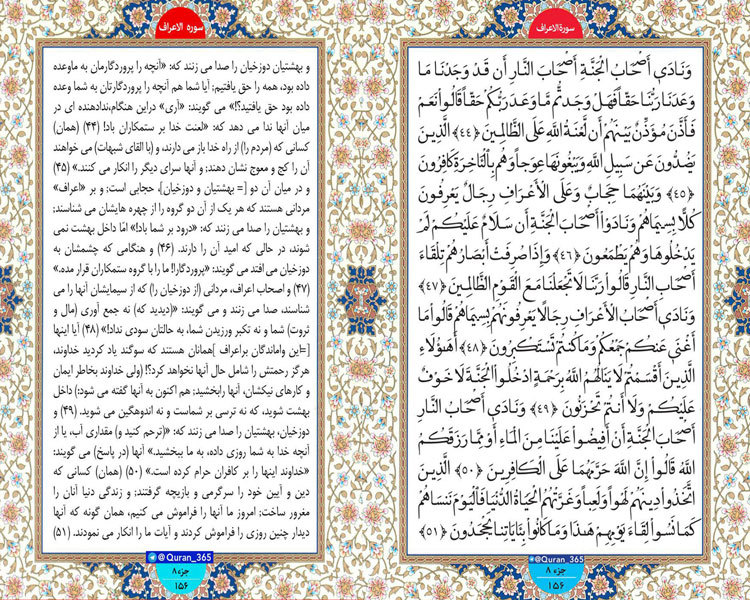 سورةالاعراف
وَنَادَىٰ أَصْحَابُ الْجَنَّةِ أَصْحَابَ النَّارِ أَن قَدْ وَجَدْنَا مَا
وَعَدَنَا رَبُّنَا حَقًّا فَهَلْ وَجَدتُّم مَّا وَعَدَ رَبُّكُمْ حَقًّا قَالُوا نَعَمْ
فَأَذَّنَ مُؤَذِّنٌ بَيْنَهُمْ أَن لَّعْنَةُ اللَّهِ عَلَى الظَّالِمِينَ ﴿٤٤﴾ الَّذِينَ
يَصُدُّونَ عَن سَبِيلِ اللَّهِ وَيَبْغُونَهَا عِوَجًا وَهُم بِالْآخِرَةِ كَافِرُونَ
﴿٤٥﴾ وَبَيْنَهُمَا حِجَابٌ وَعَلَى الْأَعْرَافِ رِجَالٌ يَعْرِفُونَ
كُلًّا بِسِيمَاهُمْ وَنَادَوْا أَصْحَابَ الْجَنَّةِ أَن سَلَامٌ عَلَيْكُمْ لَمْ
يَدْخُلُوهَا وَهُمْ يَطْمَعُونَ ﴿٤٦﴾ وَإِذَا صُرِفَتْ أَبْصَارُهُمْ تِلْقَاءَ
أَصْحَابِ النَّارِ قَالُوا رَبَّنَا لَا تَجْعَلْنَا مَعَ الْقَوْمِ الظَّالِمِينَ ﴿٤٧﴾
وَنَادَىٰ أَصْحَابُ الْأَعْرَافِ رِجَالًا يَعْرِفُونَهُم بِسِيمَاهُمْ قَالُوا مَا
أَغْنَىٰ عَنكُمْ جَمْعُكُمْ وَمَا كُنتُمْ تَسْتَكْبِرُونَ ﴿٤٨﴾ أَهَٰؤُلَاءِ
الَّذِينَ أَقْسَمْتُمْ لَا يَنَالُهُمُ اللَّهُ بِرَحْمَةٍ ادْخُلُوا الْجَنَّةَ لَا خَوْفٌ
عَلَيْكُمْ وَلَا أَنتُمْ تَحْزَنُونَ ﴿٤٩﴾ وَنَادَىٰ أَصْحَابُ النَّارِ
أَصْحَابَ الْجَنَّةِ أَنْ أَفِيضُوا عَلَيْنَا مِنَ الْمَاءِ أَوْ مِمَّا رَزَقَكُمُ
اللَّهُ قَالُوا إِنَّ اللَّهَ حَرَّمَهُمَا عَلَى الْكَافِرِينَ ﴿٥٠﴾ الَّذِينَ
اتَّخَذُوا دِينَهُمْ لَهْوًا وَلَعِبًا وَغَرَّتْهُمُ الْحَيَاةُ الدُّنْيَا فَالْيَوْمَ نَنسَاهُمْ
كَمَا نَسُوا لِقَاءَ يَوْمِهِمْ هَٰذَا وَمَا كَانُوا بِآيَاتِنَا يَجْحَدُونَ ﴿٥١﴾
@Quran_365
جزء ۸
۱۵۶
سوره الاعراف
و بهشتیان دوزخیان را صدا می زنند که: «آنچه را پروردگارمان به ماوعده
داده بود، همه را حق یافتیم؛ آیا شما هم آنچه را پروردگارتان به شما وعده
داده بود حق یافتید؟!» می گویند: «آری» دراین هنگام،ندادهنده ای در
میان آنها ندا می دهد که: «لعنت خدا بر ستمکاران باد! (۴۴) (همان)
کسانی که (مردم را) از راه خدا باز می دارند، و (با القای شبهات) می خواهند
آن را کج و معوج نشان دهند؛ و آنها سرای دیگر را انکار می کنند.» (۴۵)
و در میان آن دو [= بهشتیان و دوزخیان]، حجابی است؛ و بر «اعراف»
مردانی هستند که هر یک از آن دو گروه را از چهره هایشان می شناسند؛
و بهشتیان را صدا می زنند که: «درود بر شما باد!» امّا داخل بهشت نمی
شوند، در حالی که امید آن را دارند. (۴۶) و هنگامی که چشمشان به
دوزخیان می افتد می گویند: «پروردگارا! ما را با گروه ستمکاران قرار مده.»
(۴۷) و اصحاب اعراف، مردانی (از دوزخیان را) که از سیمایشان آنها را می
شناسند، صدا می زنند و می گویند: «(دیدید که) نه جمع آوری (مال و
ثروت) شما و نه تکبر ورزیدن شما، به حالتان سودی نداد!» (۴۸) آیا اینها
[=این واماندگان براعراف ]همانان هستند که سوگند یاد کردید خداوند،
هرگز رحمتش را شامل حال آنها نخواهد کرد؟! (ولی خداوند بخاطر ایمان
و کارهای نیکشان، آنها رابخشید؛ هم اکنون به آنها گفته می شود:) داخل
بهشت شوید، که نه ترسی بر شماست و نه اندوهگین می شوید. (۴۹) و
دوزخیان، بهشتیان را صدا می زنند که: «(ترحم کنید و) مقداری آب، یا از
آنچه خدا به شما روزی داده، به ما ببخشید.» آنها (در پاسخ) می گویند:
«خداوند اینها را بر کافران حرام کرده است.» (۵۰) (همان) کسانی که
دین و آیین خود را سرگرمی و بازیچه گرفتند؛ و زندگی دنیا آنان را
مغرور ساخت؛ امروز ما آنها را فراموش می کنیم، همان گونه که آنها
دیدار چنین روزی را فراموش کردند و آیات ما را انکار می نمودند. (۵۱)
@Quran_365
جزء ۸
۱۵۶